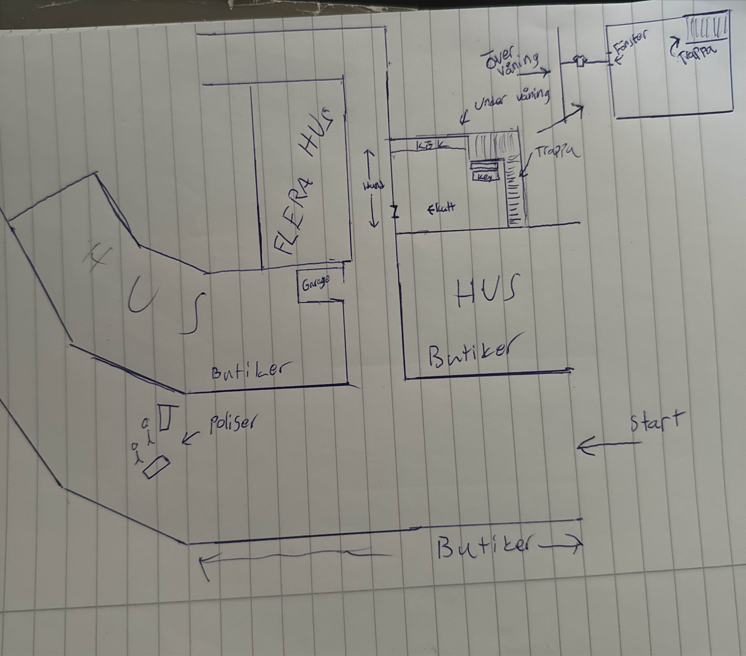 Över
våning
Fönster
Trappa
Under våning
Trappa
KÖK
Key
Hund
Skatt
FLERA HUS
HUS
Garage
HUS
Butiker
Butiker
Poliser
Start
Butiker